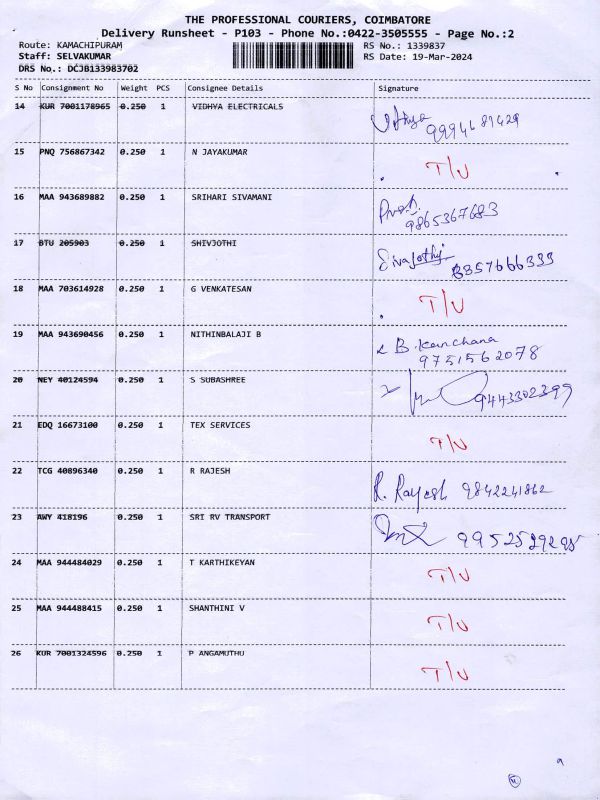 THE PROFESSIONAL COURIERS, COIMBATORE
Delivery Runsheet - P103 - Phone No.:0422-3505555 - Page No.:2
Route: KAMACHIPURAM RS No.: 1339837
Staff: SELVAKUMAR RS Date: 19-Mar-2024
DRS No.: DCJB133983702
S No Consignment No Weight PCS Consignee Details Signature
14 KUR 7001178965 0.250 1 VIDHYA ELECTRICALS
9994681429
15 PNQ 756867342 0.250 1 N JAYAKUMAR T/U
16 MAA 943689882 0.250 1 SRIHARI SIVAMANI
9865367683
17 BTU 205903 0.250 1 SHIVJOTHI Sivajothi
8357666333
18 MAA 703614928 0.250 1 G VENKATESAN T/U
19 MAA 943690456 0.250 1 NITHINBALAJI B B. Kanchana
9751562078
20 NEY 40124594 0.250 1 S SUBASHREE 9443302399
21 EDQ 16673100 0.250 1 TEX SERVICES T/U
22 TCG 40896340 0.250 1 R RAJESH R. Rajesh 9842241862
23 AWY 418196 0.250 1 SRI RV TRANSPORT
24 MAA 944484029 0.250 1 T KARTHIKEYAN T/U
25 MAA 944488415 0.250 1 SHANTHINI V T/U
26 KUR 7001324596 0.250 1 P ANGAMUTHU T/U